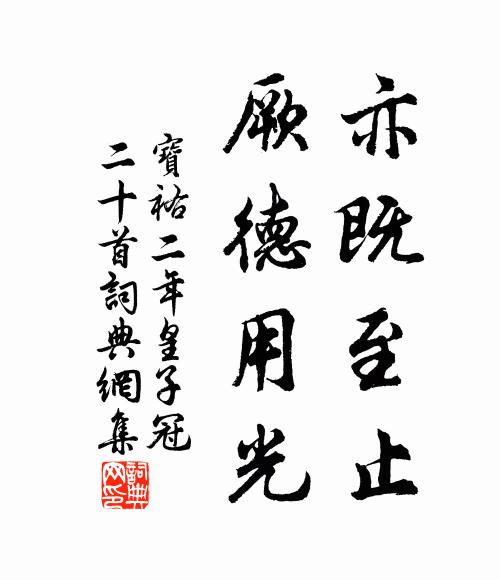 亦既至止
厥德用光
寶祐二年皇子冠
二十首詞典網集
詞典网印